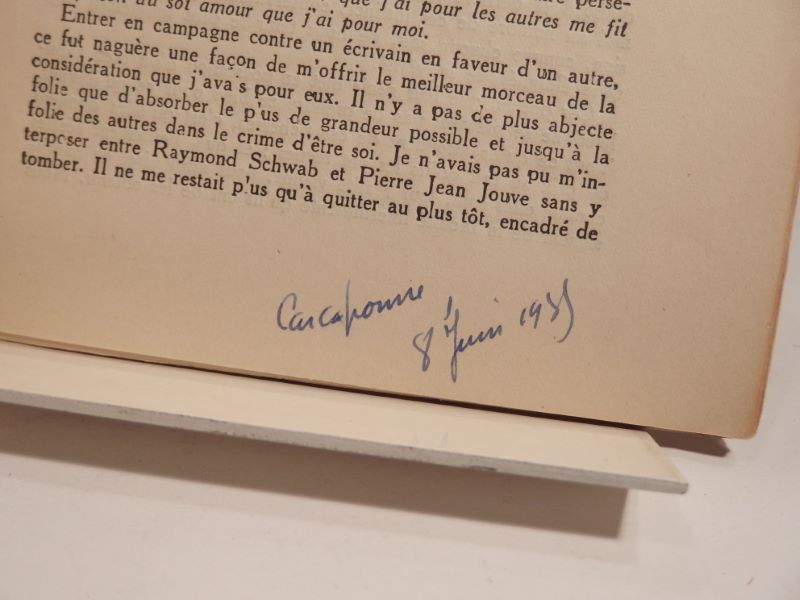 que j'ai pour les autres me fit
soi amour que j'ai pour moi.
Entrer en campagne contre un écrivain en faveur d'un autre,
ce fut naguère une façon de m'offrir le meilleur morceau de la
considération que j'ava's pour eux. Il n'y a pas de plus abjecte
folie que d'absorber le p'us de grandeur possible et jusqu'à la
folie des autres dans le crime d'être soi. Je n'avais pas pu m'in-
terposer entre Raymond Schwab et Pierre Jean Jouve sans y
tomber. Il ne me restait p'us qu'à quitter au plus tôt, encadré de
Carcassonne
8 Juin